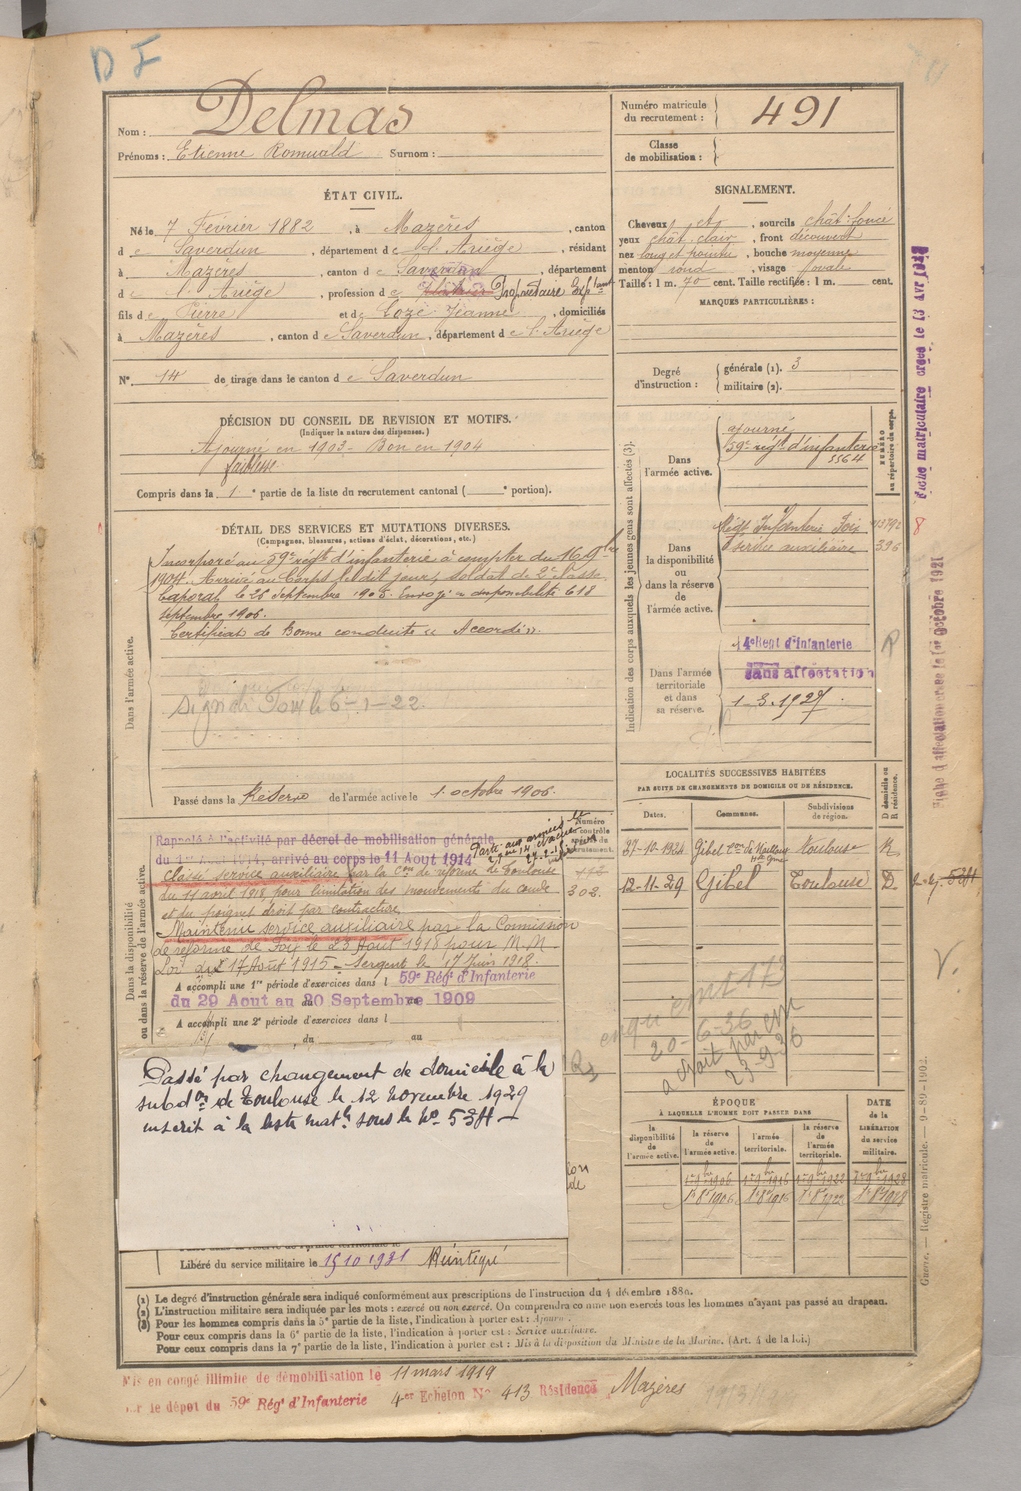 D F
Nom : Delmas
Prénoms : Etienne Romuald Surnom :
Numéro matricule du recrutement : 491
Classe de mobilisation :
ÉTAT CIVIL.
Né le 7 Février 1882, à Mazères, canton
de Saverdun, département de l'Ariège, résidant
à Mazères, canton de Saverdun, département
de l'Ariège, profession de Propriétaire
fils de Pierre et de Lozé Jeanne, domiciliés
à Mazères, canton de Saverdun, département de l'Ariège
N° 14 de tirage dans le canton de Saverdun
SIGNALEMENT.
Cheveux et, sourcils chât. foncé
yeux chât. clair, front découvert
nez long et pointu, bouche moyenne
menton rond, visage ovale
Taille : 1 m. 70 cent. Taille rectifiée : 1 m. cent.
MARQUES PARTICULIÈRES :
Degré d'instruction : générale (1). 3
militaire (2).
DÉCISION DU CONSEIL DE REVISION ET MOTIFS.
(Indiquer la nature des dispenses.)
Ajourné en 1903 - Bon en 1904
faiblesse
Compris dans la 1e partie de la liste du recrutement cantonal ( e portion).
DÉTAIL DES SERVICES ET MUTATIONS DIVERSES.
(Campagnes, blessures, actions d'éclat, décorations, etc.)
Dans l'armée active.
Incorporé au 59e régt d'infanterie à compter du 16 9bre
1904. Arrivé au Corps le dit jour, soldat de 2e classe
Caporal le 26 Septembre 1905. Envoyé en disponibilité le 18
septembre 1906.
Certificat de Bonne conduite "Accordé".
6-1-22
Passé dans la Réserve de l'armée active le 1 octobre 1906.
Dans la disponibilité ou dans la réserve de l'armée active.
Rappelé à l'activité par décret de mobilisation générale
du 1er Aout 1914, arrivé au corps le 11 Aout 1914
Parti aux armées le
Classé service auxiliaire par la Con de réforme de Toulouse
du 17 avril 1918, pour limitation des mouvements du coude
et du poignet droit par contracture
Maintenu service auxiliaire par la Comission
de réforme de Foix le 23 Aout 1918 pour M.N.
Loi du 17 Août 1915 - Sergent le 17 Juin 1918.
A accompli une 1re période d'exercices dans l 59e Rég' d'Infanterie
du 29 Aout au 20 Septembre 1909
A accompli une 2e période d'exercices dans l
du au
Numéro contrôle
302.
Passé par changement de domicile à la
subdon de Toulouse le 12 novembre 1929
inscrit à la liste matle sous le No 5211
Libéré du service militaire le 15 10 1931 Réintégré
Indication des corps auxquels les jeunes gens sont affectés (3).
NUMÉRO au répertoire du corps.
Dans l'armée active.
ajourné
59e régt d'infanterie
3564
Dans la disponibilité ou dans la réserve de l'armée active.
Régt Infanterie Foix
Service auxiliaire 396
Dans l'armée territoriale et dans sa réserve.
4e Regt d'Infanterie
sans affectation
1-3.1927
R
LOCALITÉS SUCCESSIVES HABITÉES
PAR SUITE DE CHANGEMENTS DE DOMICILE OU DE RÉSIDENCE.
Dates. Communes. Subdivisions de région. D domicile ou R résidence.
27-10-1924 Gibel Toulouse R.
12-11-29 Gibel Toulouse D.
20-6-36
23-9-36
V.
ÉPOQUE
À LAQUELLE L'HOMME DOIT PASSER DANS
la disponibilité de l'armée active. la réserve de l'armée active. l'armée territoriale. la réserve de l'armée territoriale.
DATE de la LIBÉRATION du service militaire.
1er 9bre 1906 1er 9bre 1916 1er 9bre 1922 1er 9bre 1928
1er 8bre 1906 1er 8bre 1916 1er 8bre 1922 1er 8bre 1928
Fiche matriculaire créée le
Fiche d'affectation créée le 1er Octobre 1921
8
Guerre. — Registre matricule. — 9-89-1902.
(1) Le degré d'instruction générale sera indiqué conformément aux prescriptions de l'instruction du 4 décembre 1889.
(2) L'instruction militaire sera indiquée par les mots : exercé ou non exercé. On comprendra comme non exercés tous les hommes n'ayant pas passé au drapeau.
(3) Pour les hommes compris dans la 5e partie de la liste, l'indication à porter est : Ajourné.
Pour ceux compris dans la 6e partie de la liste, l'indication à porter est : Service auxiliaire.
Pour ceux compris dans la 7e partie de la liste, l'indication à porter est : Mis à la disposition du Ministre de la Marine. (Art. 4 de la loi.)
Mis en congé illimité de démobilisation le 11 mars 1919
le dépot du 59e Rég' d'Infanterie 4me Echelon No 413 Résidence Mazères